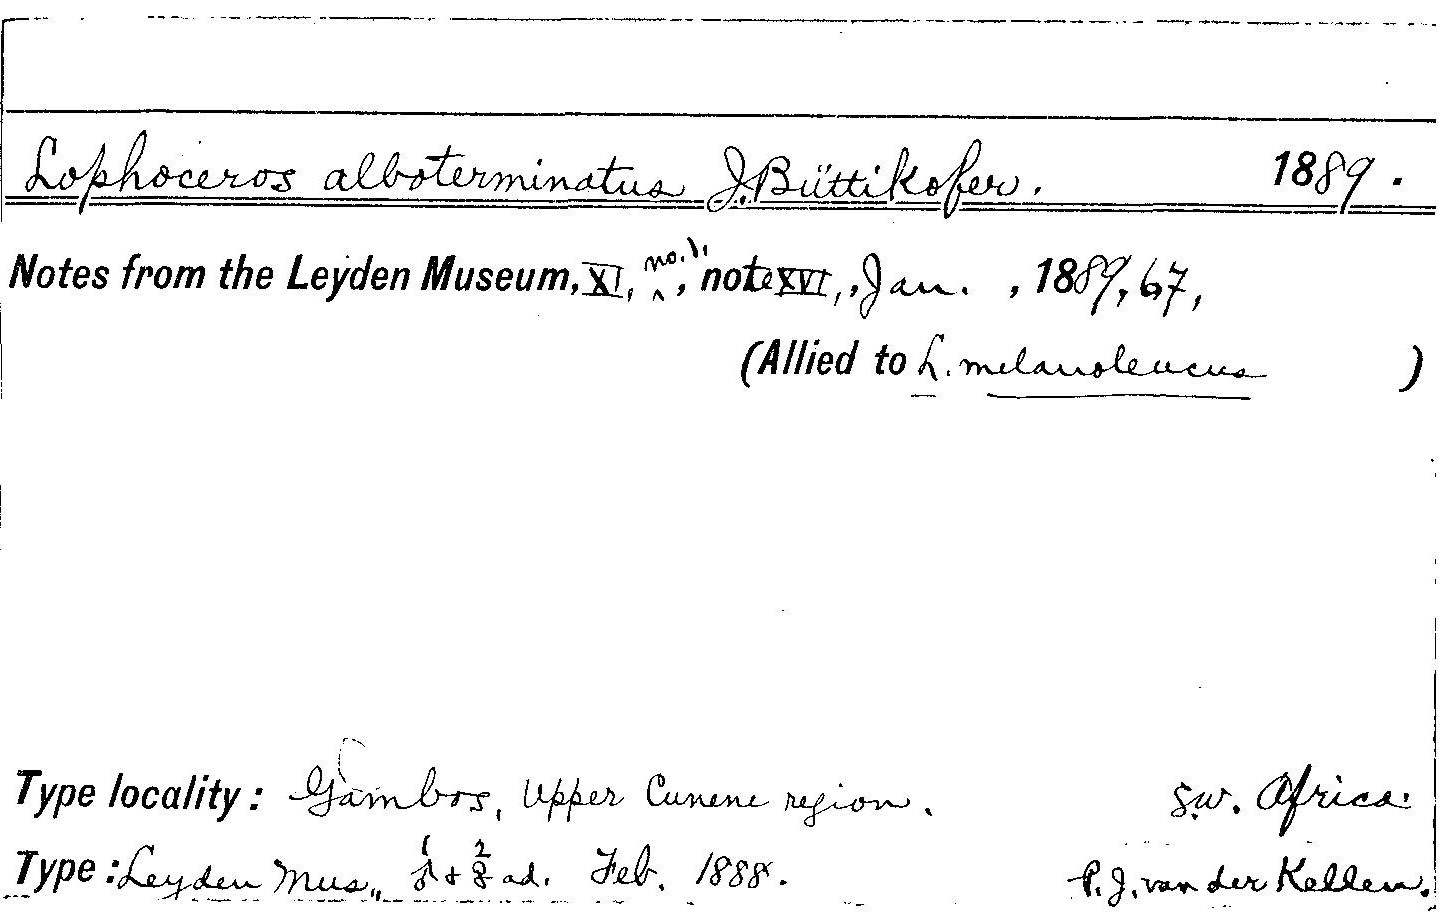 Lophoceros alboterminatus J. Büttikofer. 1889.
Notes from the Leyden Museum, XI, no. 1, note XVI, Jan. , 1889, 67,
(Allied to L. melanoleucus )
Type locality: Gambos, Upper Cunene region. S.W. Africa.
Type: Leyden Mus., 1 ♂ + 2 ♀ ad. Feb. 1888. P. J. van der Kellen.